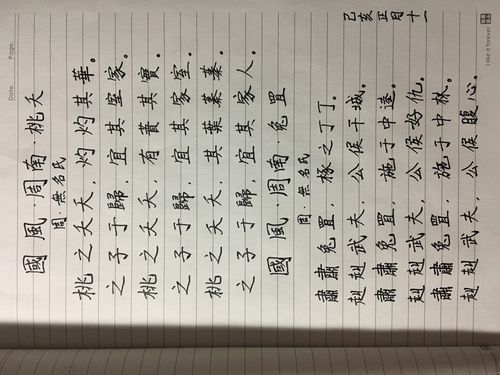 Date. Page.
國風·周南·桃夭
周·無名氏
桃之夭夭，灼灼其華。
之子于歸，宜其室家。
桃之夭夭，有蕡其實。
之子于歸，宜其家室。
桃之夭夭，其葉蓁蓁。
之子于歸，宜其家人。
國風·周南·兔罝
周·無名氏
肅肅兔罝，椓之丁丁。
赳赳武夫，公侯干城。
肅肅兔罝，施于中逵。
赳赳武夫，公侯好仇。
肅肅兔罝，施于中林。
赳赳武夫，公侯腹心。
己亥 正月 十一
I like it forever